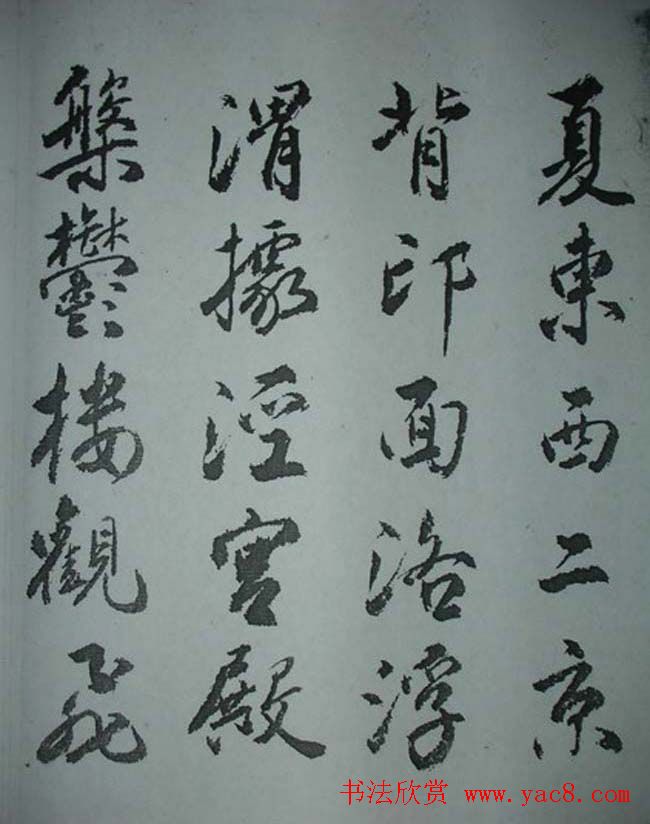 夏東西二京
背邙面洛浮
渭據涇宮殿
槃鬱楼觀飛
书法欣赏 www.yac8.com